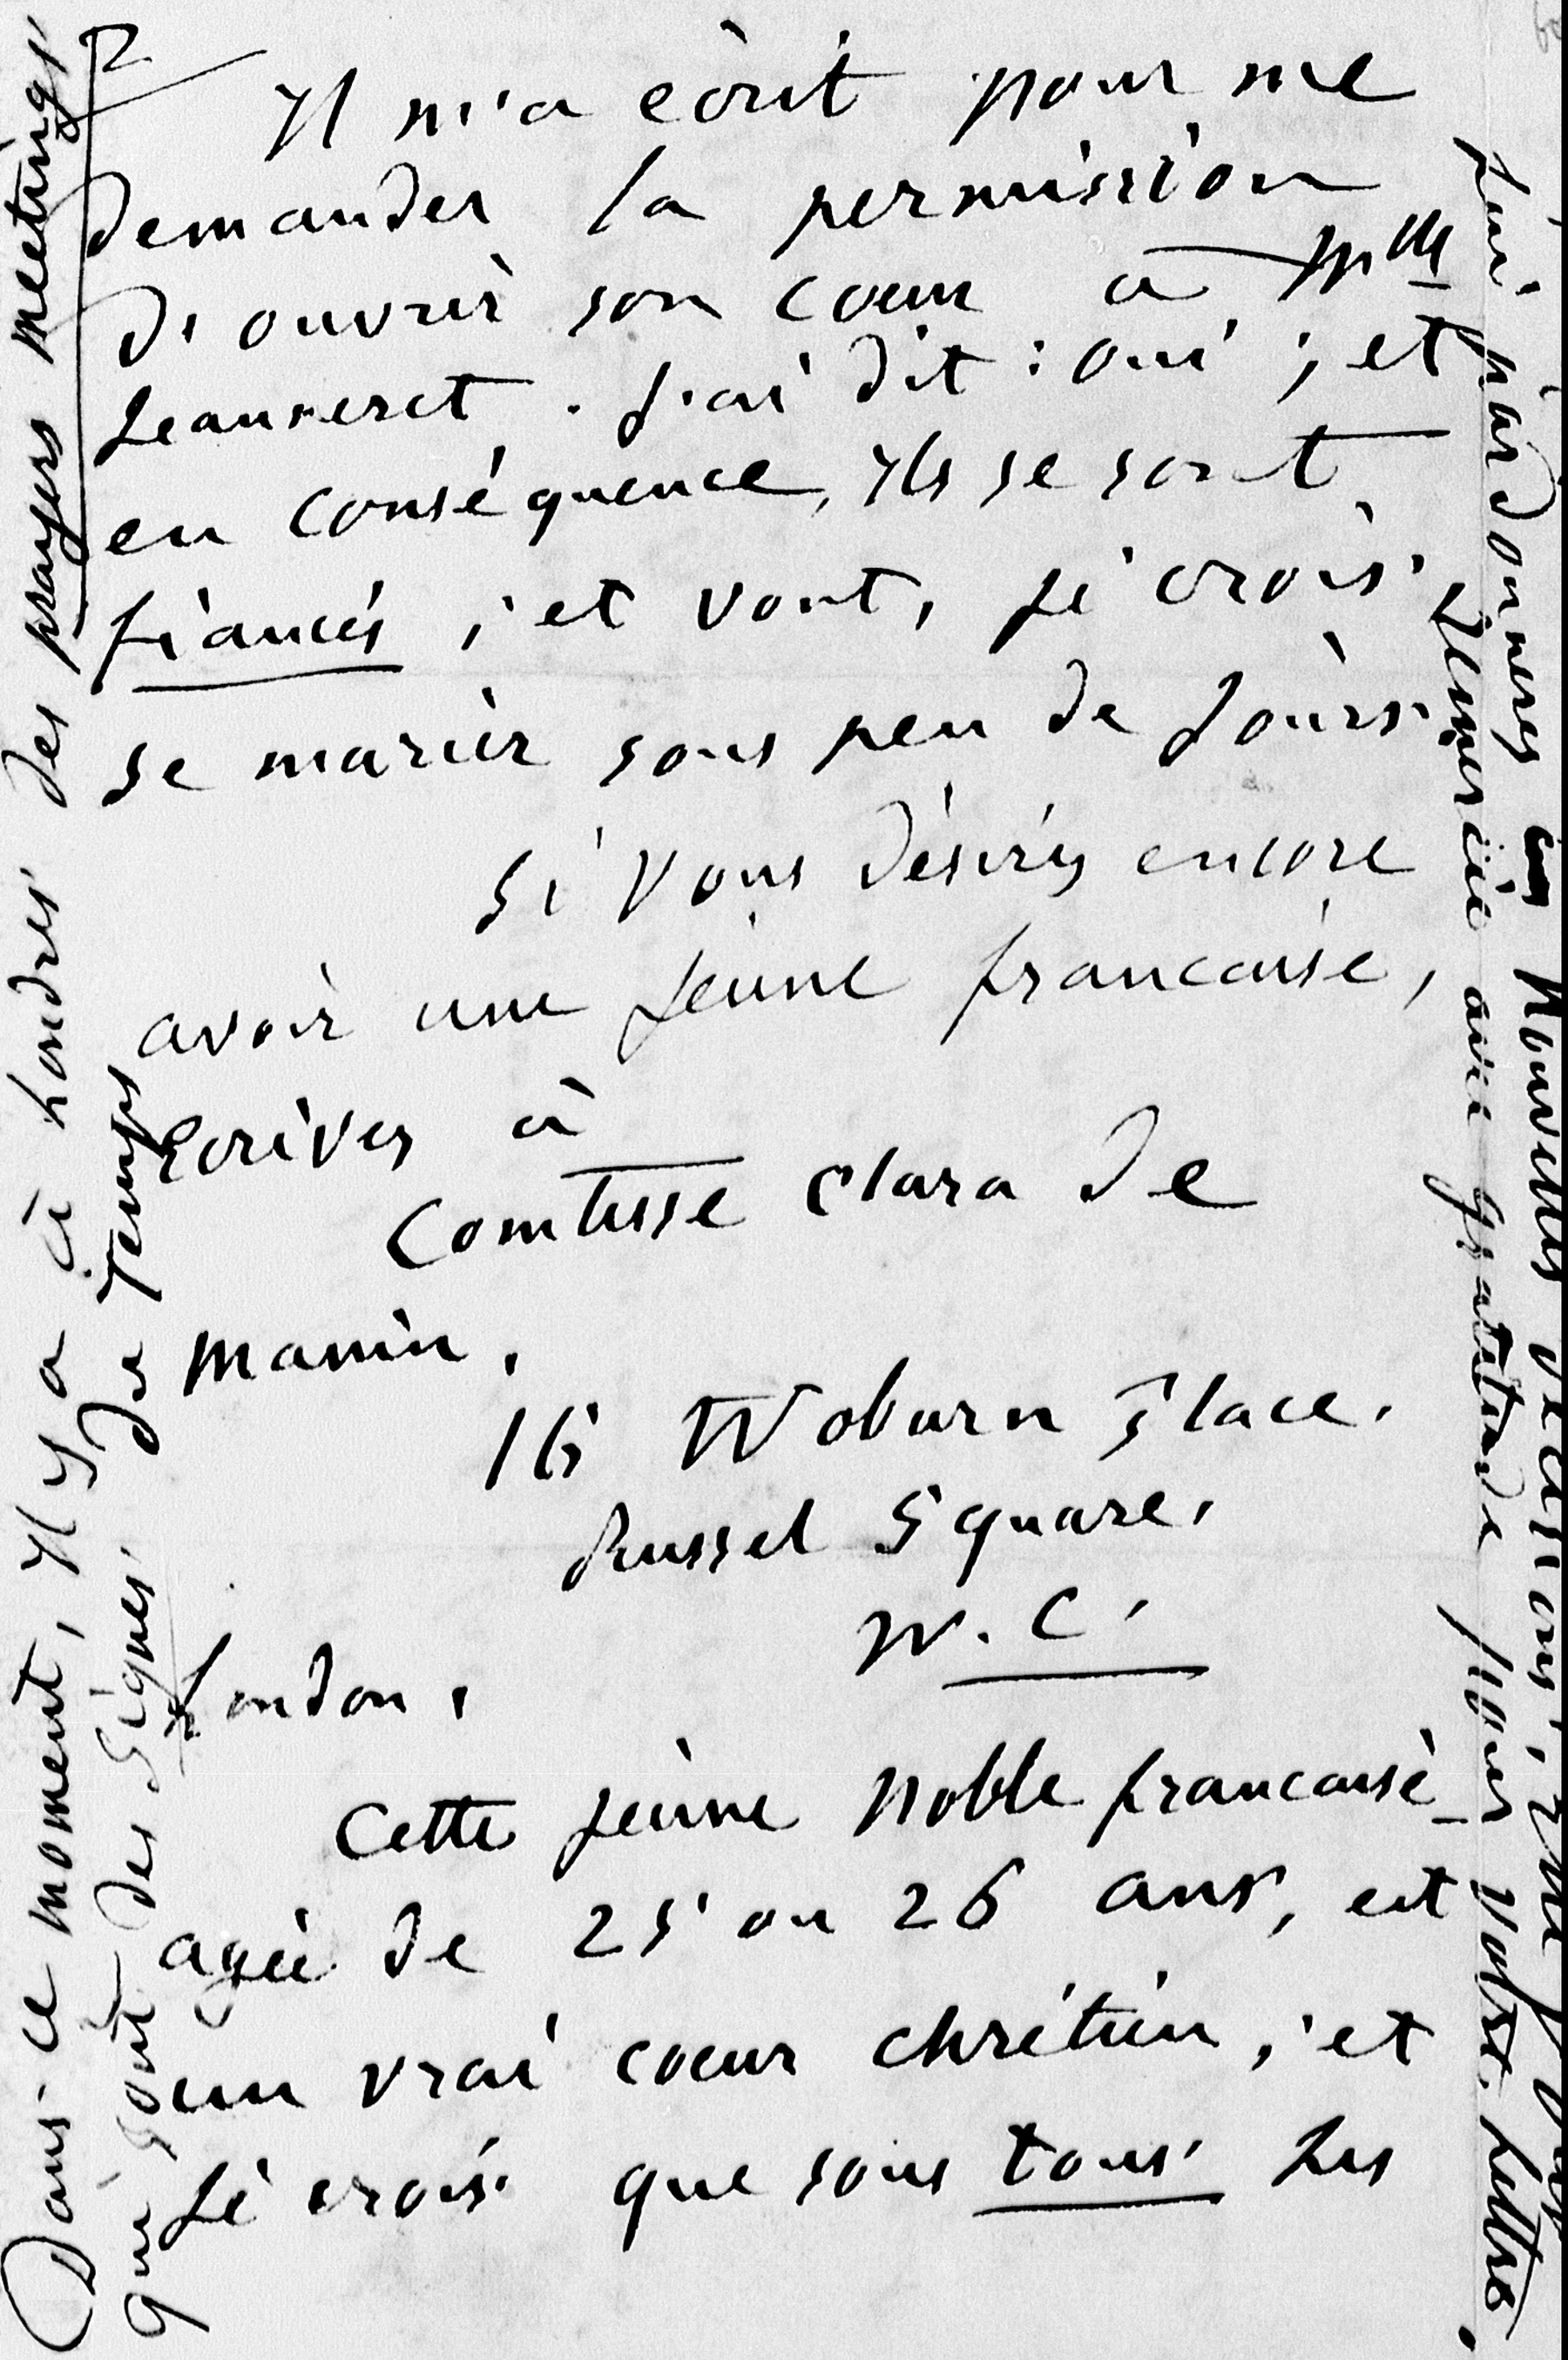 2
Il m'a écrit pour me
demander la permission
d'ouvrir son coeur à Mlle
Jeanneret. J'ai dit : oui ; et
en conséquence, ils se sont
fiancés ; et vont, je crois
se marier sous peu de jours.
Si vous désirez encore
avoir une jeune francaise,
écrivez à
Comtesse Clara de
Manin.
16 Woburn Place.
Russel Square.
W. C.
London.
Cette jeune noble francaise
agée de 25 ou 26 ans, est
un vrai coeur chrétien, et
je crois que sous tous les
Dans ce moment, il y a à Londres des prayers meetings
qui sont des signes de temps
pardonnerez ces nouvelles
remerciée avec gratitude pour votre lettre.